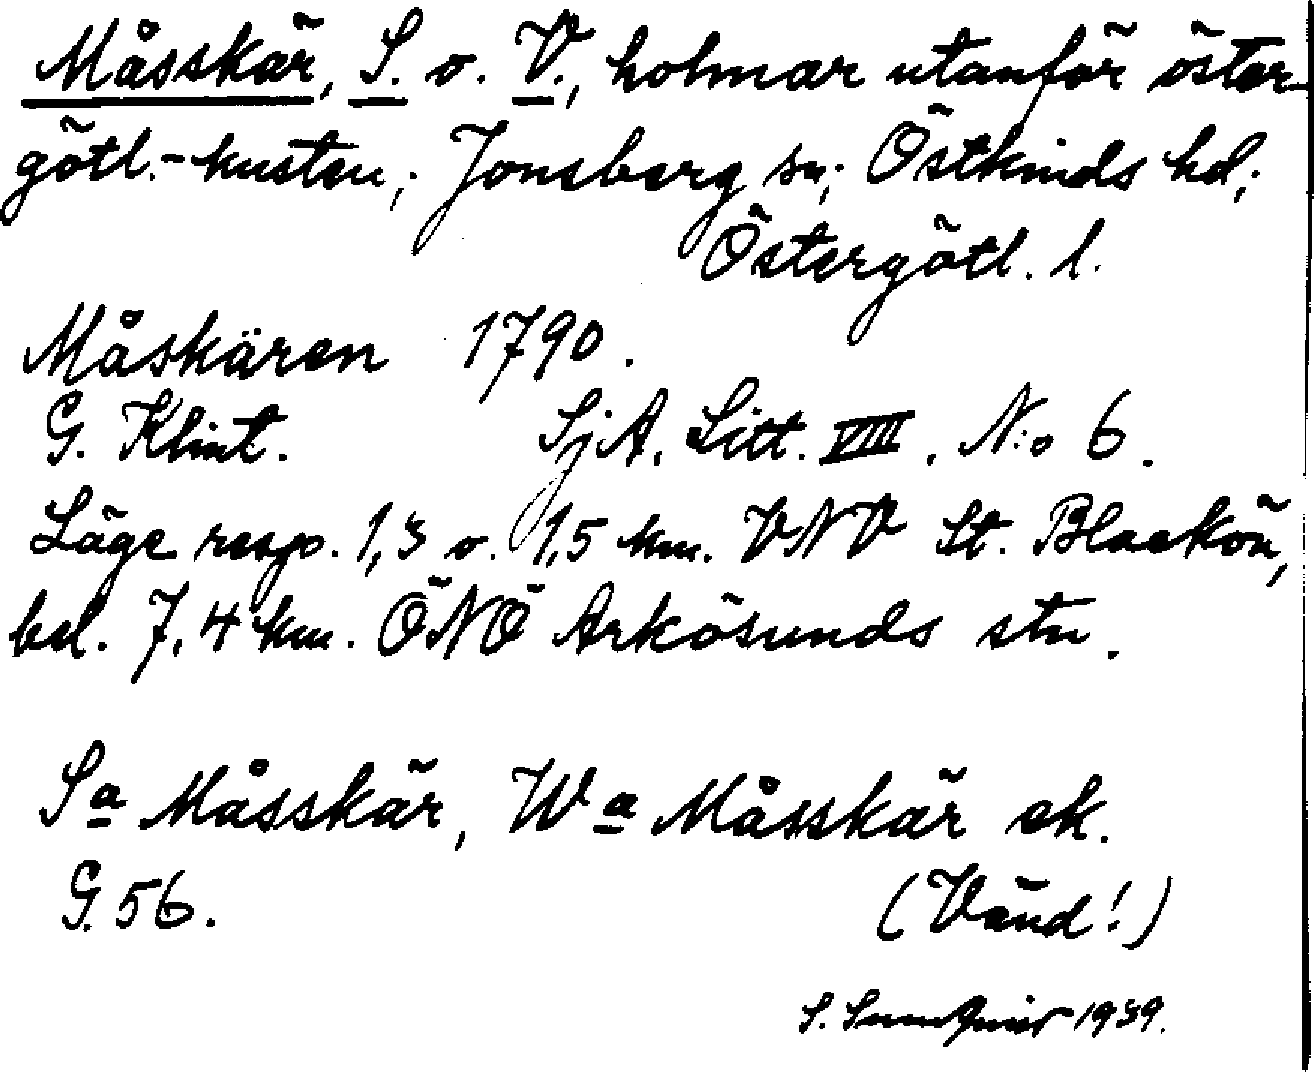 Måsskär, S. o. V., holmar utanför öster-
götl.-kusten; Jonsberg sn; Östkinds hd;
Östergötl. l.
Måskären 1790.
G. Klint. SjA. Litt. VIII. N:o 6.
Läge resp. 1,3 o. 1,5 km. VNV St. Blackön,
bel. 7,4 km. ÖNÖ Arkösunds stn.
Sa Måsskär, Wa Måsskär ek.
G. 56. (Vänd!)
S. 1939.